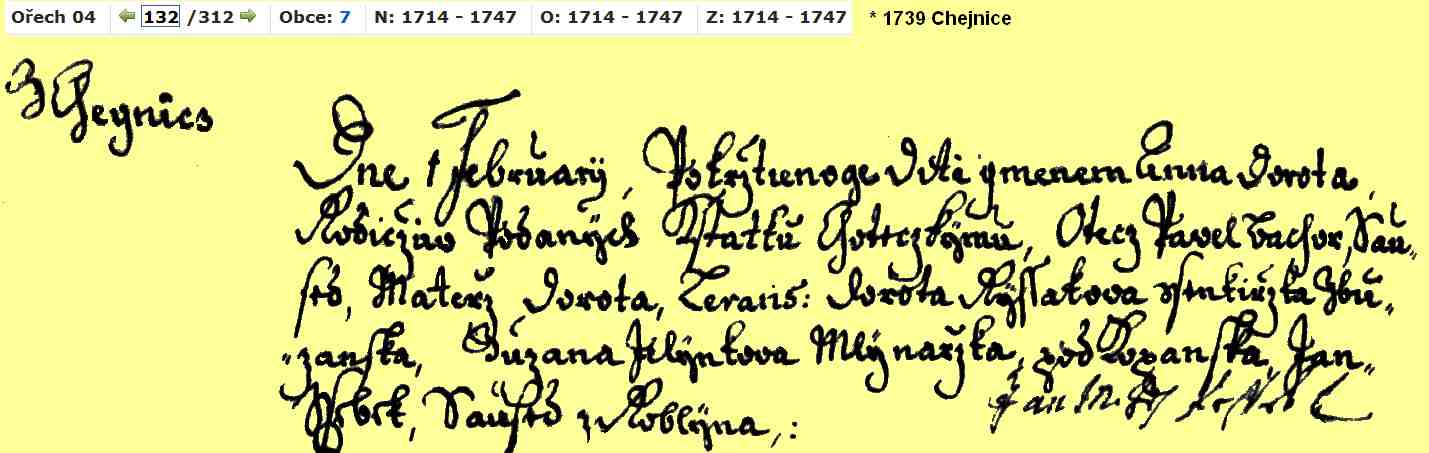 Ořech 04 132 /312 Obce: 7 N: 1714 - 1747 O: 1714 - 1747 Z: 1714 - 1747 * 1739 Chejnice
Z Cheynicz
Dne 1 February, Pokrztienoge Ditie gmenem Anna Dorota,
Rodicžuw Podanych Statku Choteczkýmu, Otecz Pavel Bachor, Sau„
sed, Materz Dorota, Levans: Dorota Ryssakova Ssenkirzka Zbu„
„zanska, Suzana Mlýnkova Mlýnarzka, pod Kopanska, Jan„
Ssebek, Saused z Koblýna,:
Jan